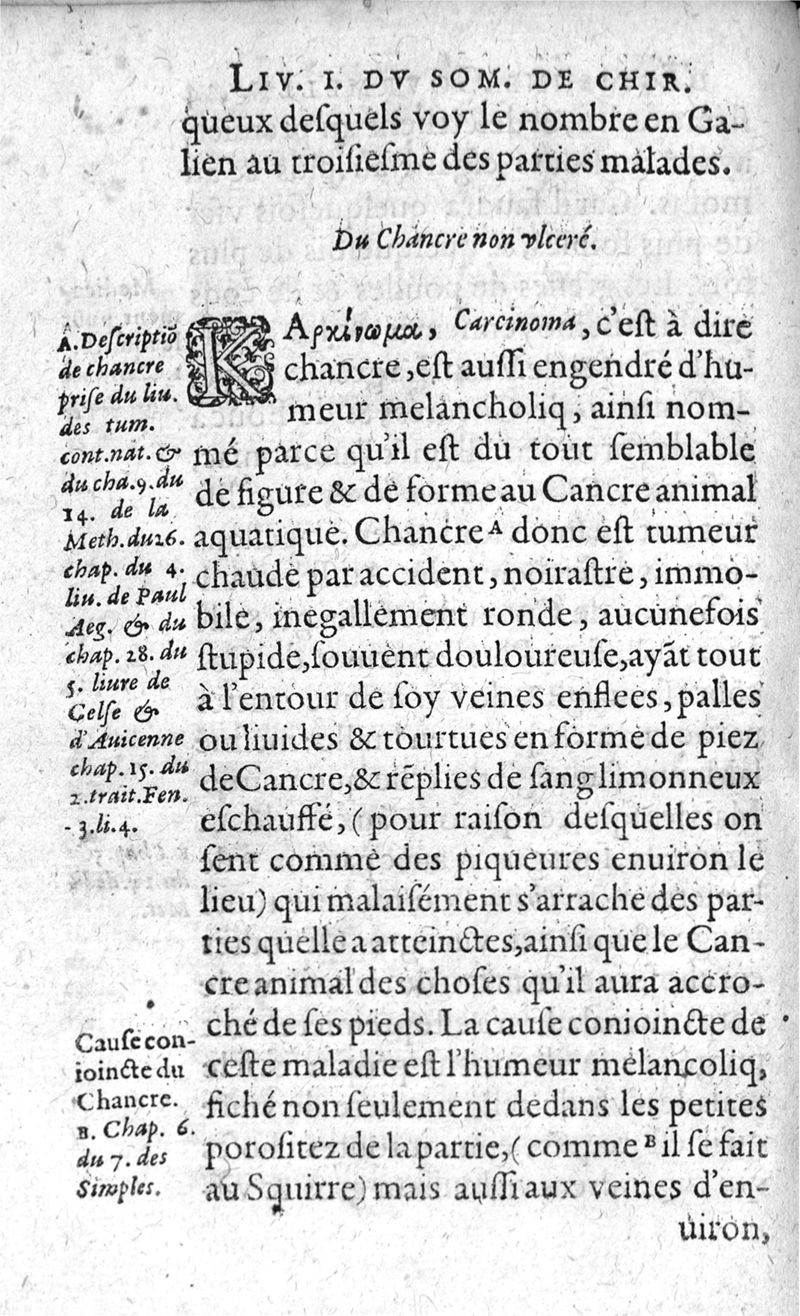 LIV. I. DV SOM. DE CHIR.
queux deſquels voy le nombre en Ga-
lien au troiſieſme des parties malades.
Du Chancre non vlceré.
KΑρκίνωμα, Carcinoma, c'eſt à dire
chancre, eſt auſſi engendré d'hu-
meur melancholiq, ainſi nom-
mé parce qu'il eſt du tout ſemblable
de figure & de forme au Cancre animal
aquatique. Chancre A donc eſt tumeur
chaude par accident, noiraſtre, immo-
bile, inegallement ronde, aucunefois
ſtupide, ſouuent douloureuſe, ayãt tout
à l'entour de ſoy veines enflees, palles
ou liuides & tourtues en forme de piez
de Cancre, & rẽplies de ſang limonneux
eſchauffé, (pour raiſon deſquelles on
ſent comme des piqueures enuiron le
lieu) qui malaiſément s'arrache des par-
ties quelle a atteinctes, ainſi que le Can-
cre animal des choſes qu'il aura accro-
ché de ſes pieds. La cauſe conioincte de
ceſte maladie eſt l'humeur melancoliq,
fiché non ſeulement dedans les petites
poroſitez de la partie, (comme B il ſe fait
au Squirre) mais auſſi aux veines d'en-
uiron,
A. Deſcriptiõ
de chancre
priſe du liu.
des tum.
cont. nat. &
du cha. 9. du
14. de la
Meth. du 26.
chap. du 4.
liu. de Paul
Aeg. & du
chap. 28. du
5. liure de
Celſe &
d'Auicenne
chap. 15. du
2. trait. Fen.
3. li. 4.
Cauſe con-
ioincte du
Chancre.
B. Chap. 6.
du 7. des
Simples.